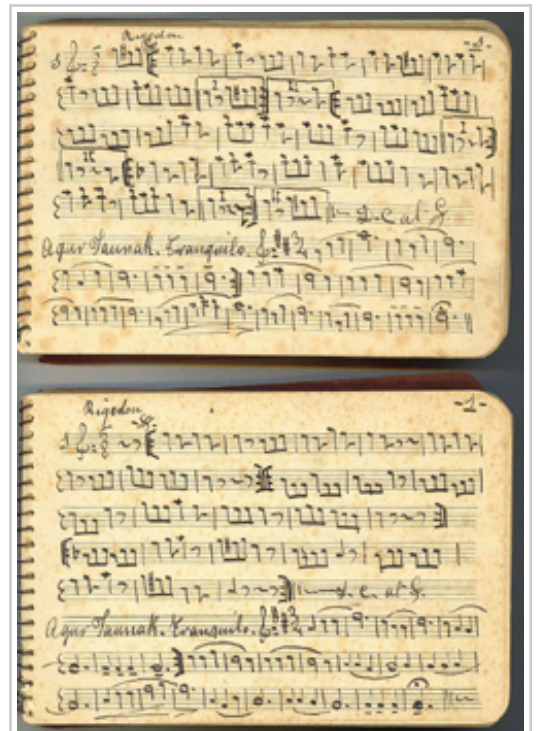 Rigodon -1-
I
II
I
II
I
II D.C. al S.
Agur Jaunak. Tranquilo.
Rigodon -1-
D. C. al S.
Agur Jaunak. Tranquilo.